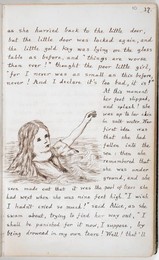 17.
as she hurried back to the little door,
but the little door was locked again, and
the little gold key was lying on the glass
table as before, and "things are worse
than ever!" thought the poor little girl,
"for I never was as small as this before,
never! And I declare it's too bad, it is!"
At this moment
her foot slipped,
and splash! she
was up to her chin
in salt water. Her
first idea was
that she had
fallen into the
sea: then she
remembered that
she was under
ground, and she
soon made out that it was the pool of tears she
had wept when she was nine feet high. "I wish
I hadn't cried so much!" said Alice, as she
swam about, trying to find her way out, "I
shall be punished for it now, I suppose, by
being drowned in my own tears! Well! that'll